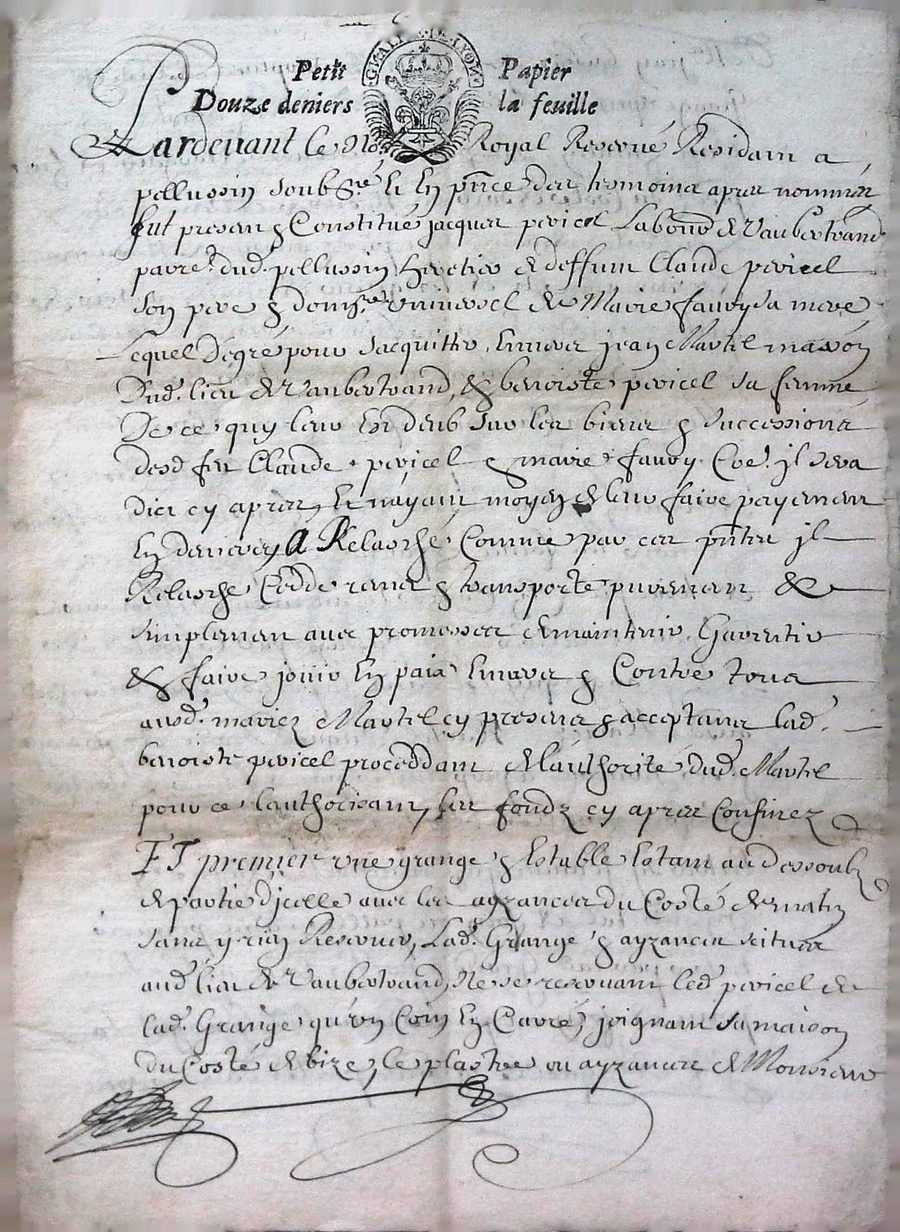 Petit Papier
Douze deniers la feuille
GNALITE LYON
Pardevant le No.re Royal Reservé Residant a
pellussin soubs.né Et En pñce des tesmoins apres nommés
fut present & Constitué jacques pericel Labour. de Vaubertrand
parr.e dud. pellussin heretier de deffunt Claude pericel
son pere & universel de Marie faury sa mere
Lequel Degré pour sacquitter Envers jean Martel masson
Dud. lieu de Vaubertrand, & benoiste pericel sa femme
De ce quy leur Est deub sur les biens & successions
desd feu Claude pericel & marie faury Coe. jl sera
dict cy apres, Et nayant moyen de leur faire payement
En deniers A Relasché Comme par ces pñtes jl
Relasche Cedde remet & transporte purement &
simplement avec promesses de maintenir Garentir
& faire jouir En paix Envers & Contre tous
ausd. mariez Martel cy presents & acceptants lad.
benoiste pericel proceddant de lauthorité dud. Martel
pour ce lauthorisant, les fondz cy apres Confinez
ET premier une grange & Estable Estant au dessoubz
de partie djcelle avec les ayzances du Costé de matin
sans y rien Reserver, Lad. Grange & ayzances scitues
aud. lieu de Vaubertrand, Ne se reservant led pericel de
lad. Grange qu'un Coin En Carré, joignant sa maison
du Costé de bize, le plastre ou ayzances de Monsieur